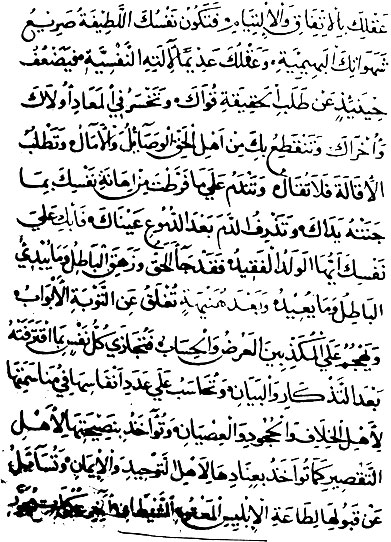 عقلك بالاتفاق والالتيام، فتكون نفسك اللطيفة صريع
شهواتك البهيمية، وعقلك عديماً لآلته النفسية، فيضعف
حينئذ عن طلب حقيقة قواك، وتخسر في المعاد أولاك
وأخراك، وتنقطع بك من اهل الحق الوصايل والآمال، وتطلب
الاقالة فلا تقال، وتندم على ما فرطت من اهانة نفسك بما
جنته يداك، وتذرف الدم بعد الدموع عيناك، فابك على
نفسك أيها الولد الفقيد، فقد جآ الحق وزهق الباطل وما يبدئ
الباطل وما يعيد، وبعد هنيهة تغلق عن التوبة الأبواب
ويهجم على المكذبين العرض والحساب، فتجازى كل نفس بما اقترفته
بعد التذكار والبيان، وتحاسب على عدد أنفاسها في
لأهل الخلاف والجحود والعصيان، وتؤاخذ بنصيحتها لأهل
التقصير كما تؤاخذ بعنادها لأهل التوحيد والإيمان، وتسأل
عن قبولها لطاعة الإبليس